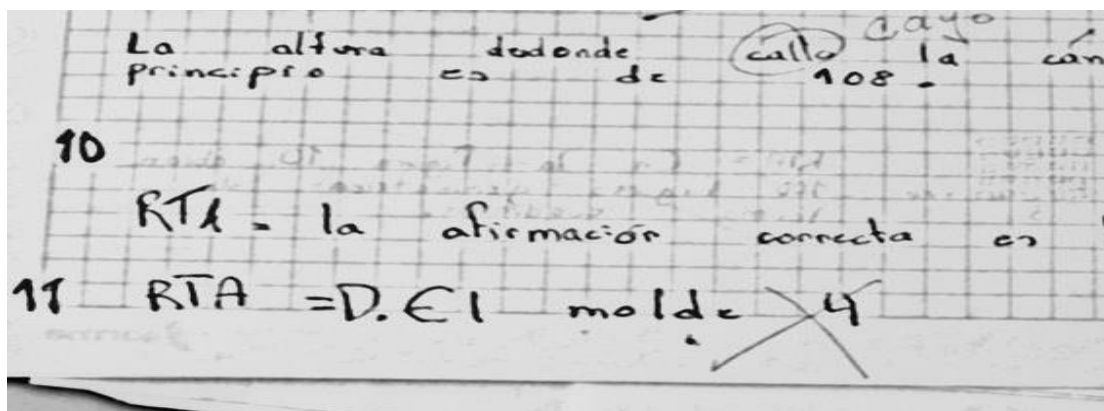 cayo
La altura dedonde callo la cán
principio es de 108.
10
RTA = la afirmación correcta es
11 RTA = D. El molde 4